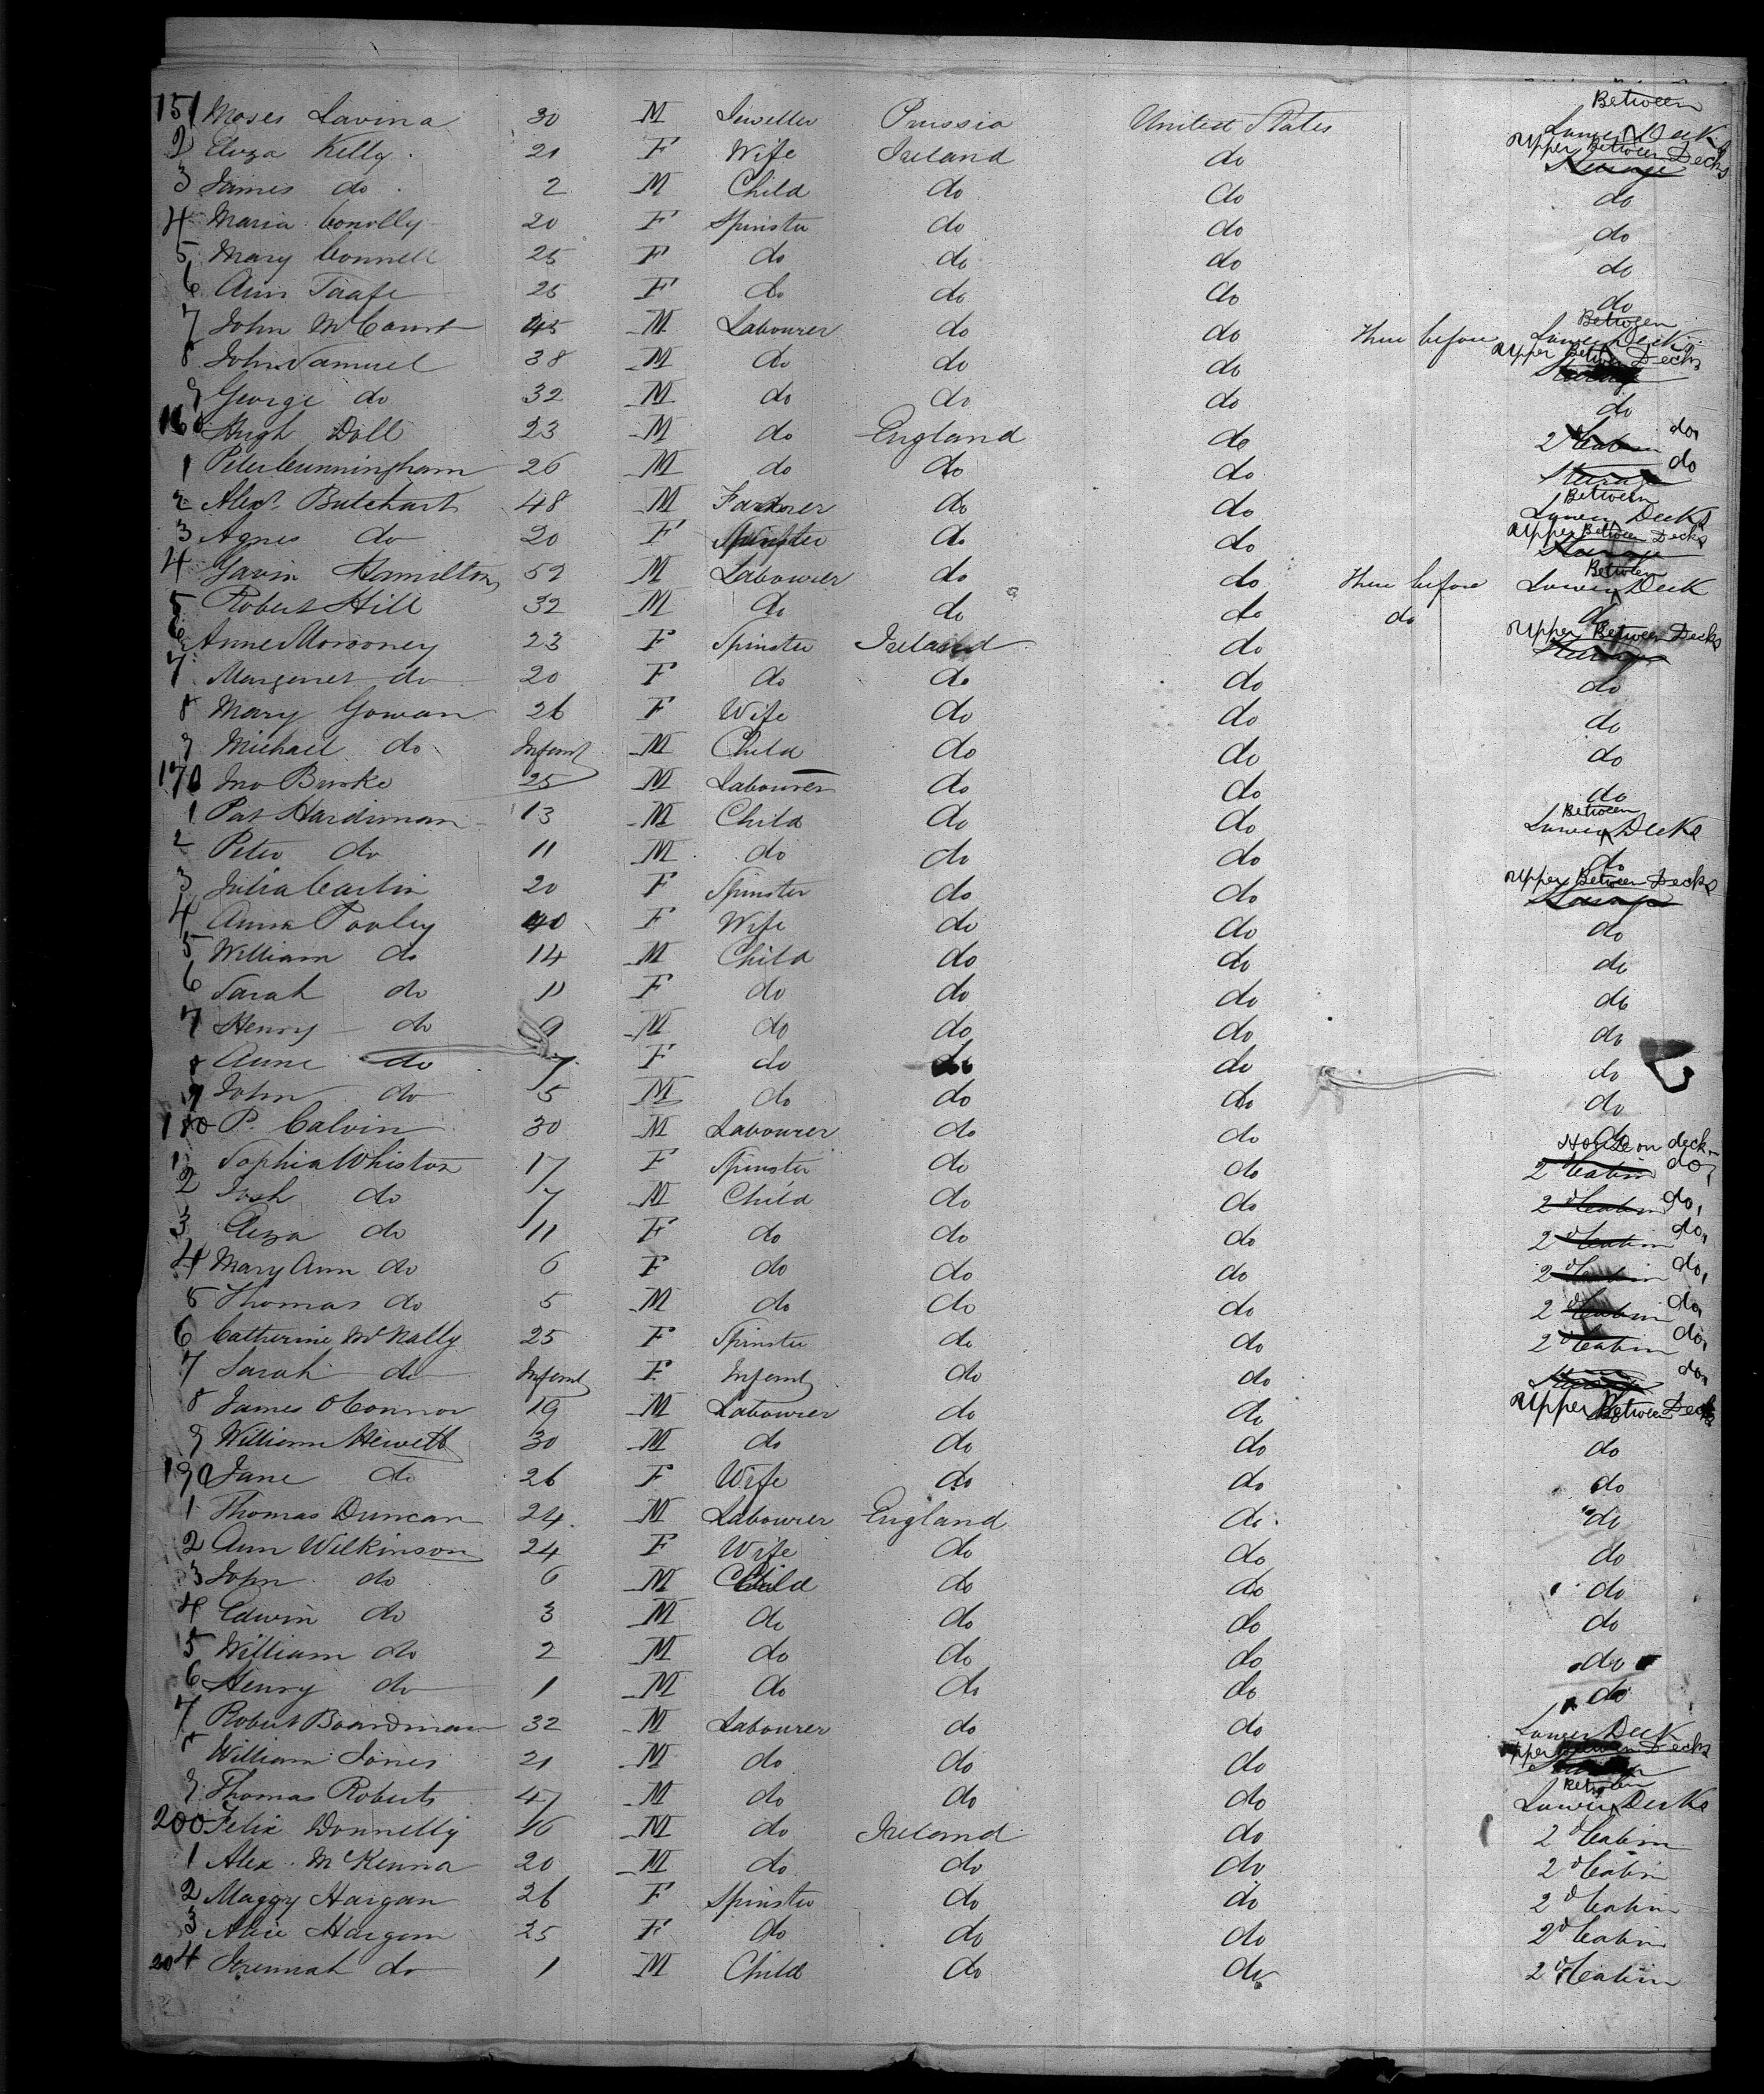 151 Moses Lavina 30 M Jeweller Prussia United States Lower Between Deck
2 Eliza Kelly 21 F Wife Ireland do Upper Between Decks Steerage
3 James do 2 M Child do do do
4 Maria Conolly 20 F Spinster do do do
5 Mary Connell 25 F do do do do
6 Ann Taafe 25 F do do do do
7 John McCourt 45 M Labourer do do There before Lower Between Decks
8 John Samuel 38 M do do do Upper Between Decks Steerage
9 George do 32 M do do do do
160 Hugh Doll 23 M do England do 2d Cabin do
1 Peter Cunningham 26 M do do do Steerage do
2 Alexr. Butchart 48 M Farmer do do Lower Between Decks
3 Agnes do 20 F Spinster do do Upper Between Decks Steerage
4 Gavin Hamilton 52 M Labourer do do There before Lower Between Deck
5 Robert Hill 32 M do do do do do
6 Anne Morooney 23 F Spinster Ireland do Upper Between Decks Steerage
7 Margaret do 20 F do do do do
8 Mary Gowan 26 F Wife do do do
9 Michael do Infant M Child do do do
170 Jno Burke 25 M Labourer do do do
1 Pat Hardiman 13 M Child do do Lower Between Decks
2 Peter do 11 M do do do do
3 Julia Carlin 20 F Spinster do do Upper Between Decks Steerage
4 Anna Pooley 40 F Wife do do do
5 William do 14 M Child do do do
6 Sarah do 11 F do do do do
7 Henry do 9 M do do do do
8 Anne do 7 F do do do do
9 John do 5 M do do do do
180 P. Calvin 30 M Labourer do do do
1 Sophia Whiston 17 F Spinster do do House on deck 2d Cabin do
2 Josh do 7 M Child do do 2d Cabin do,
3 Eliza do 11 F do do do 2d Cabin do,
4 Mary Ann do 6 F do do do 2d Cabin do,
5 Thomas do 5 M do do do 2d Cabin do,
6 Catherine McNally 25 F Spinster do do 2d Cabin do,
7 Sarah do Infant F Infant do do Steerage do,
8 James OConnor 19 M Labourer do do Upper Between Decks
9 William Hewett 30 M do do do do
190 Jane do 26 F Wife do do do
1 Thomas Duncan 24 M Labourer England do do
2 Ann Wilkinson 24 F Wife do do do
3 John do 6 M Child do do do
4 Edwin do 3 M do do do do
5 William do 2 M do do do do
6 Henry do 1 M do do do do
7 Robert Boardman 32 M Labourer do do Lower Deck
8 William Jones 21 M do do do Upper Between Decks
9 Thomas Roberts 47 M do do do Lower Between Decks
200 Felix Donnelly 16 M do Ireland do 2d Cabin
1 Alex McKenna 20 M do do do 2d Cabin
2 Maggy Hargan 26 F Spinster do do 2d Cabin
3 Alice Hargan 25 F do do do 2d Cabin
204 Jeremiah do 1 M Child do do 2d Cabin